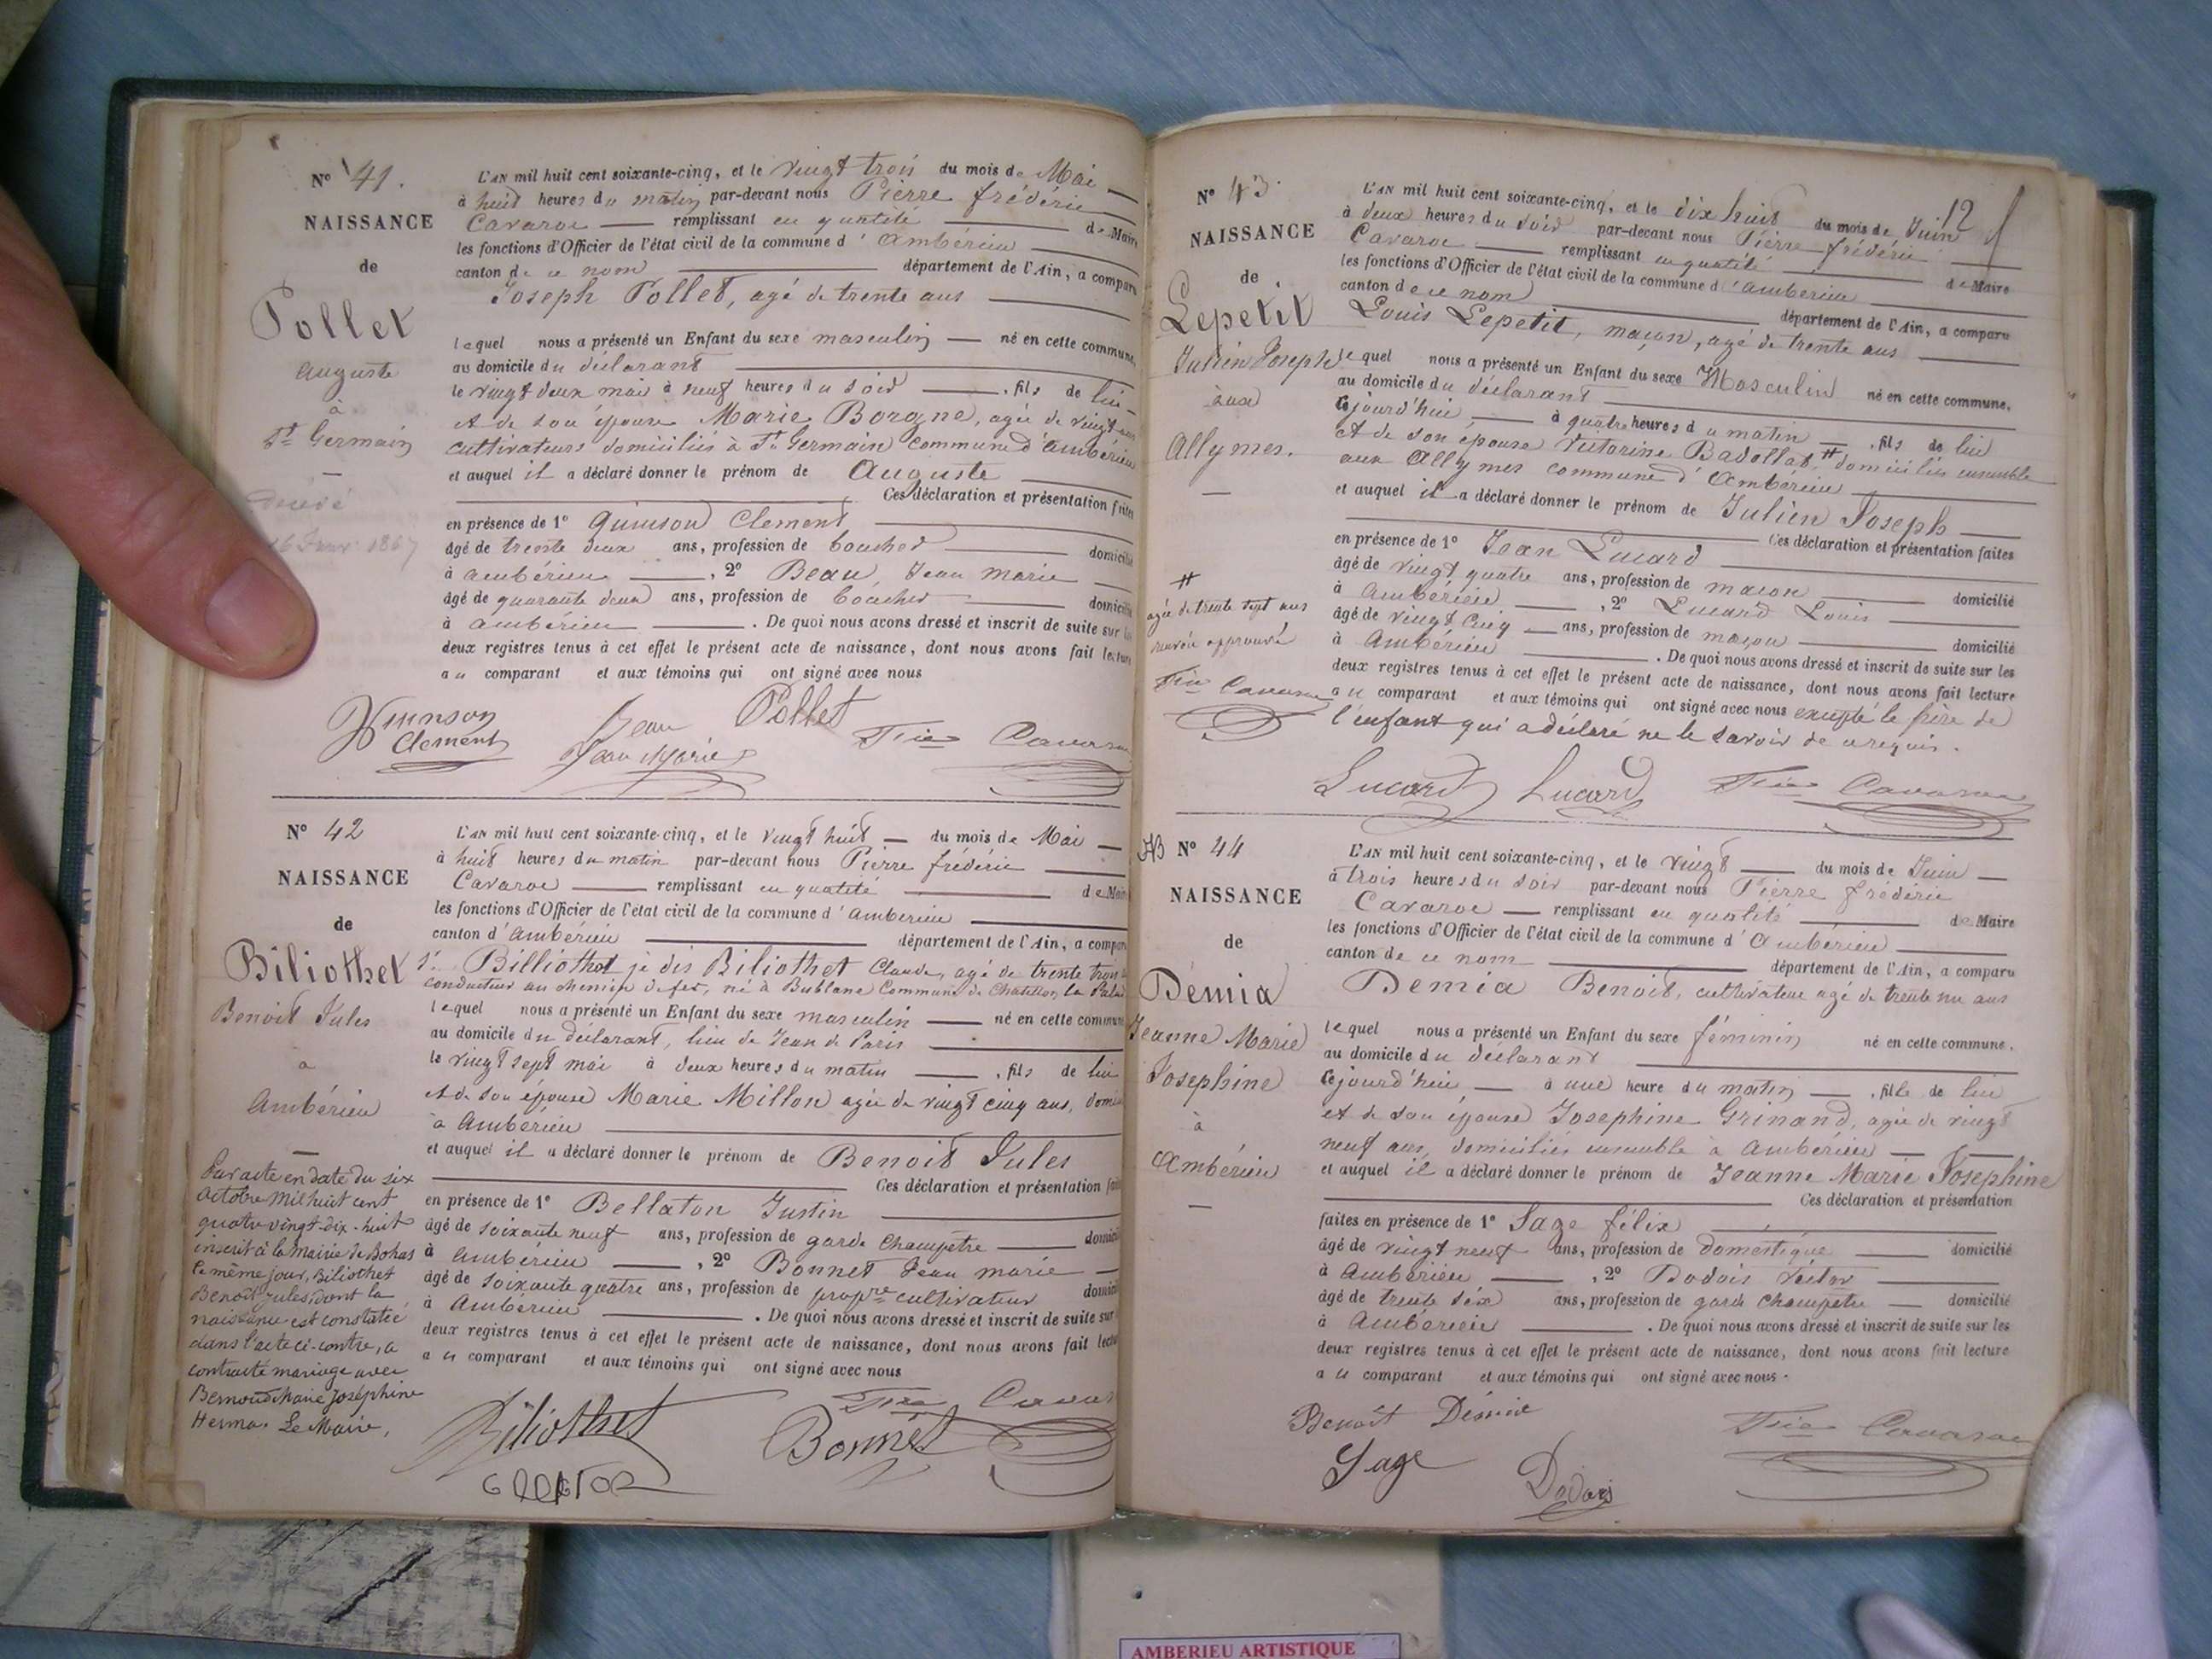 N° 41.
NAISSANCE
de
Pollet
Auguste
à
St Germain
décédé
L'AN mil huit cent soixante-cinq, et le vingt trois du mois de Mai
à huit heures du matin par-devant nous Pierre frédéric
Cavaroc remplissant en qualité de Maire
les fonctions d'Officier de l'état civil de la commune d'Ambérieu
canton de ce nom département de l'Ain, a comparu
Joseph Pollet, agé de trente ans
lequel nous a présenté un Enfant du sexe masculin né en cette commune,
au domicile du déclarant
le vingt deux mai à neuf heures du soir, fils de lui
et de son épouse Marie Borgne, agée de vingt ans
cultivateurs domiciliés à St Germain commune d'Ambérieu
et auquel il a déclaré donner le prénom de Auguste
Ces déclaration et présentation faites
en présence de 1° Quinson Clement
âgé de trente deux ans, profession de boucher domicilié
à Ambérieu, 2° Beau, Jean marie
âgé de quarante deux ans, profession de boucher domicilié
à Ambérieu. De quoi nous avons dressé et inscrit de suite sur les
deux registres tenus à cet effet le présent acte de naissance, dont nous avons fait lecture
au comparant et aux témoins qui ont signé avec nous
Quinson Clement
Beau Jean Marie
Pollet
Fric Cavaroc
N° 42
NAISSANCE
de
Biliothet
Benoit Jules
à
Ambérieu
Par acte en date du six
octobre mil huit cent
quatre vingt-dix-huit
inscrit à la mairie de Bohas
le même jour, Biliothet
Benoit Jules, dont la
naissance est constatée
dans l'acte ci-contre, a
contracté mariage avec
Bernoud Marie Joséphine
Herma. Le Maire,
L'AN mil huit cent soixante-cinq, et le vingt huit du mois de Mai
à huit heures du matin par-devant nous Pierre frédéric
Cavaroc remplissant en qualité de Maire
les fonctions d'Officier de l'état civil de la commune d'Ambérieu
canton d'Ambérieu département de l'Ain, a comparu
Sr Billiothet je dis Biliothet Claude, agé de trente trois
conducteur au chemin de fer, né à Bublane Commune de Chatillon la Palud
lequel nous a présenté un Enfant du sexe masculin né en cette commune
au domicile du déclarant, lieu de Jean de Paris
le vingt sept mai à deux heures du matin, fils de lui
et de son épouse Marie Millon agée de vingt cinq ans, domiciliés
à Ambérieu
et auquel il a déclaré donner le prénom de Benoit Jules
Ces déclaration et présentation faites
en présence de 1° Bellaton Justin
âgé de soixante neuf ans, profession de garde champêtre domicilié
à Ambérieu, 2° Bonnet Jean marie
âgé de soixante quatre ans, profession de propre cultivateur domicilié
à Ambérieu. De quoi nous avons dressé et inscrit de suite sur
deux registres tenus à cet effet le présent acte de naissance, dont nous avons fait lecture
au comparant et aux témoins qui ont signé avec nous
Biliothet
Bonnet
Fric Cavaroc
12
N° 43.
NAISSANCE
de
Lepetit
Julien Joseph
aux
Allymes.
agée de trente sept ans
renvoi approuvé
Fric Cavaroc
L'AN mil huit cent soixante-cinq, et le dix huit du mois de Juin
à deux heures du soir par-devant nous Pierre frédéric
Cavaroc remplissant en qualité de Maire
les fonctions d'Officier de l'état civil de la commune d'Ambérieu
canton de ce nom département de l'Ain, a comparu
Louis Lepetit, maçon, agé de trente ans
lequel nous a présenté un Enfant du sexe Masculin né en cette commune,
au domicile du déclarant
cejourd'hui, à quatre heures du matin, fils de lui
et de son épouse Victorine Badollat, # domiciliés ensemble
aux Allymes commune d'Ambérieu
et auquel il a déclaré donner le prénom de Julien Joseph
Ces déclaration et présentation faites
en présence de 1° Jean Lucard
âgé de vingt quatre ans, profession de maçon domicilié
à Ambérieu, 2° Lucard Louis
âgé de vingt cinq ans, profession de maçon domicilié
à Ambérieu. De quoi nous avons dressé et inscrit de suite sur les
deux registres tenus à cet effet le présent acte de naissance, dont nous avons fait lecture
au comparant et aux témoins qui ont signé avec nous excepté le père de
l'enfant qui a déclaré ne le savoir de ce requis.
Lucard Lucard Fric Cavaroc
N° 44
NAISSANCE
de
Demia
Jeanne Marie
Josephine
à
Ambérieu
L'AN mil huit cent soixante-cinq, et le vingt du mois de Juin
à trois heures du soir par-devant nous Pierre frédéric
Cavaroc remplissant en qualité de Maire
les fonctions d'Officier de l'état civil de la commune d'Ambérieu
canton de ce nom département de l'Ain, a comparu
Demia Benoit, cultivateur agé de trente un ans
lequel nous a présenté un Enfant du sexe féminin né en cette commune.
au domicile du déclarant
cejourd'hui à une heure du matin, fille de lui
et de son épouse Josephine Grinand, agée de vingt
neuf ans, domiciliés ensemble à Ambérieu
et auquel il a déclaré donner le prénom de Jeanne Marie Josephine
Ces déclaration et présentation
faites en présence de 1° Sage félix
âgé de vingt neuf ans, profession de domestique domicilié
à Ambérieu, 2° Dodois Victor
âgé de trente six ans, profession de garde champêtre domicilié
à Ambérieu. De quoi nous avons dressé et inscrit de suite sur les
deux registres tenus à cet effet le présent acte de naissance, dont nous avons fait lecture
au comparant et aux témoins qui ont signé avec nous.
Benoit Démia
Fric Cavaroc
Sage
Dodois
AMBERIEU ARTISTIQUE